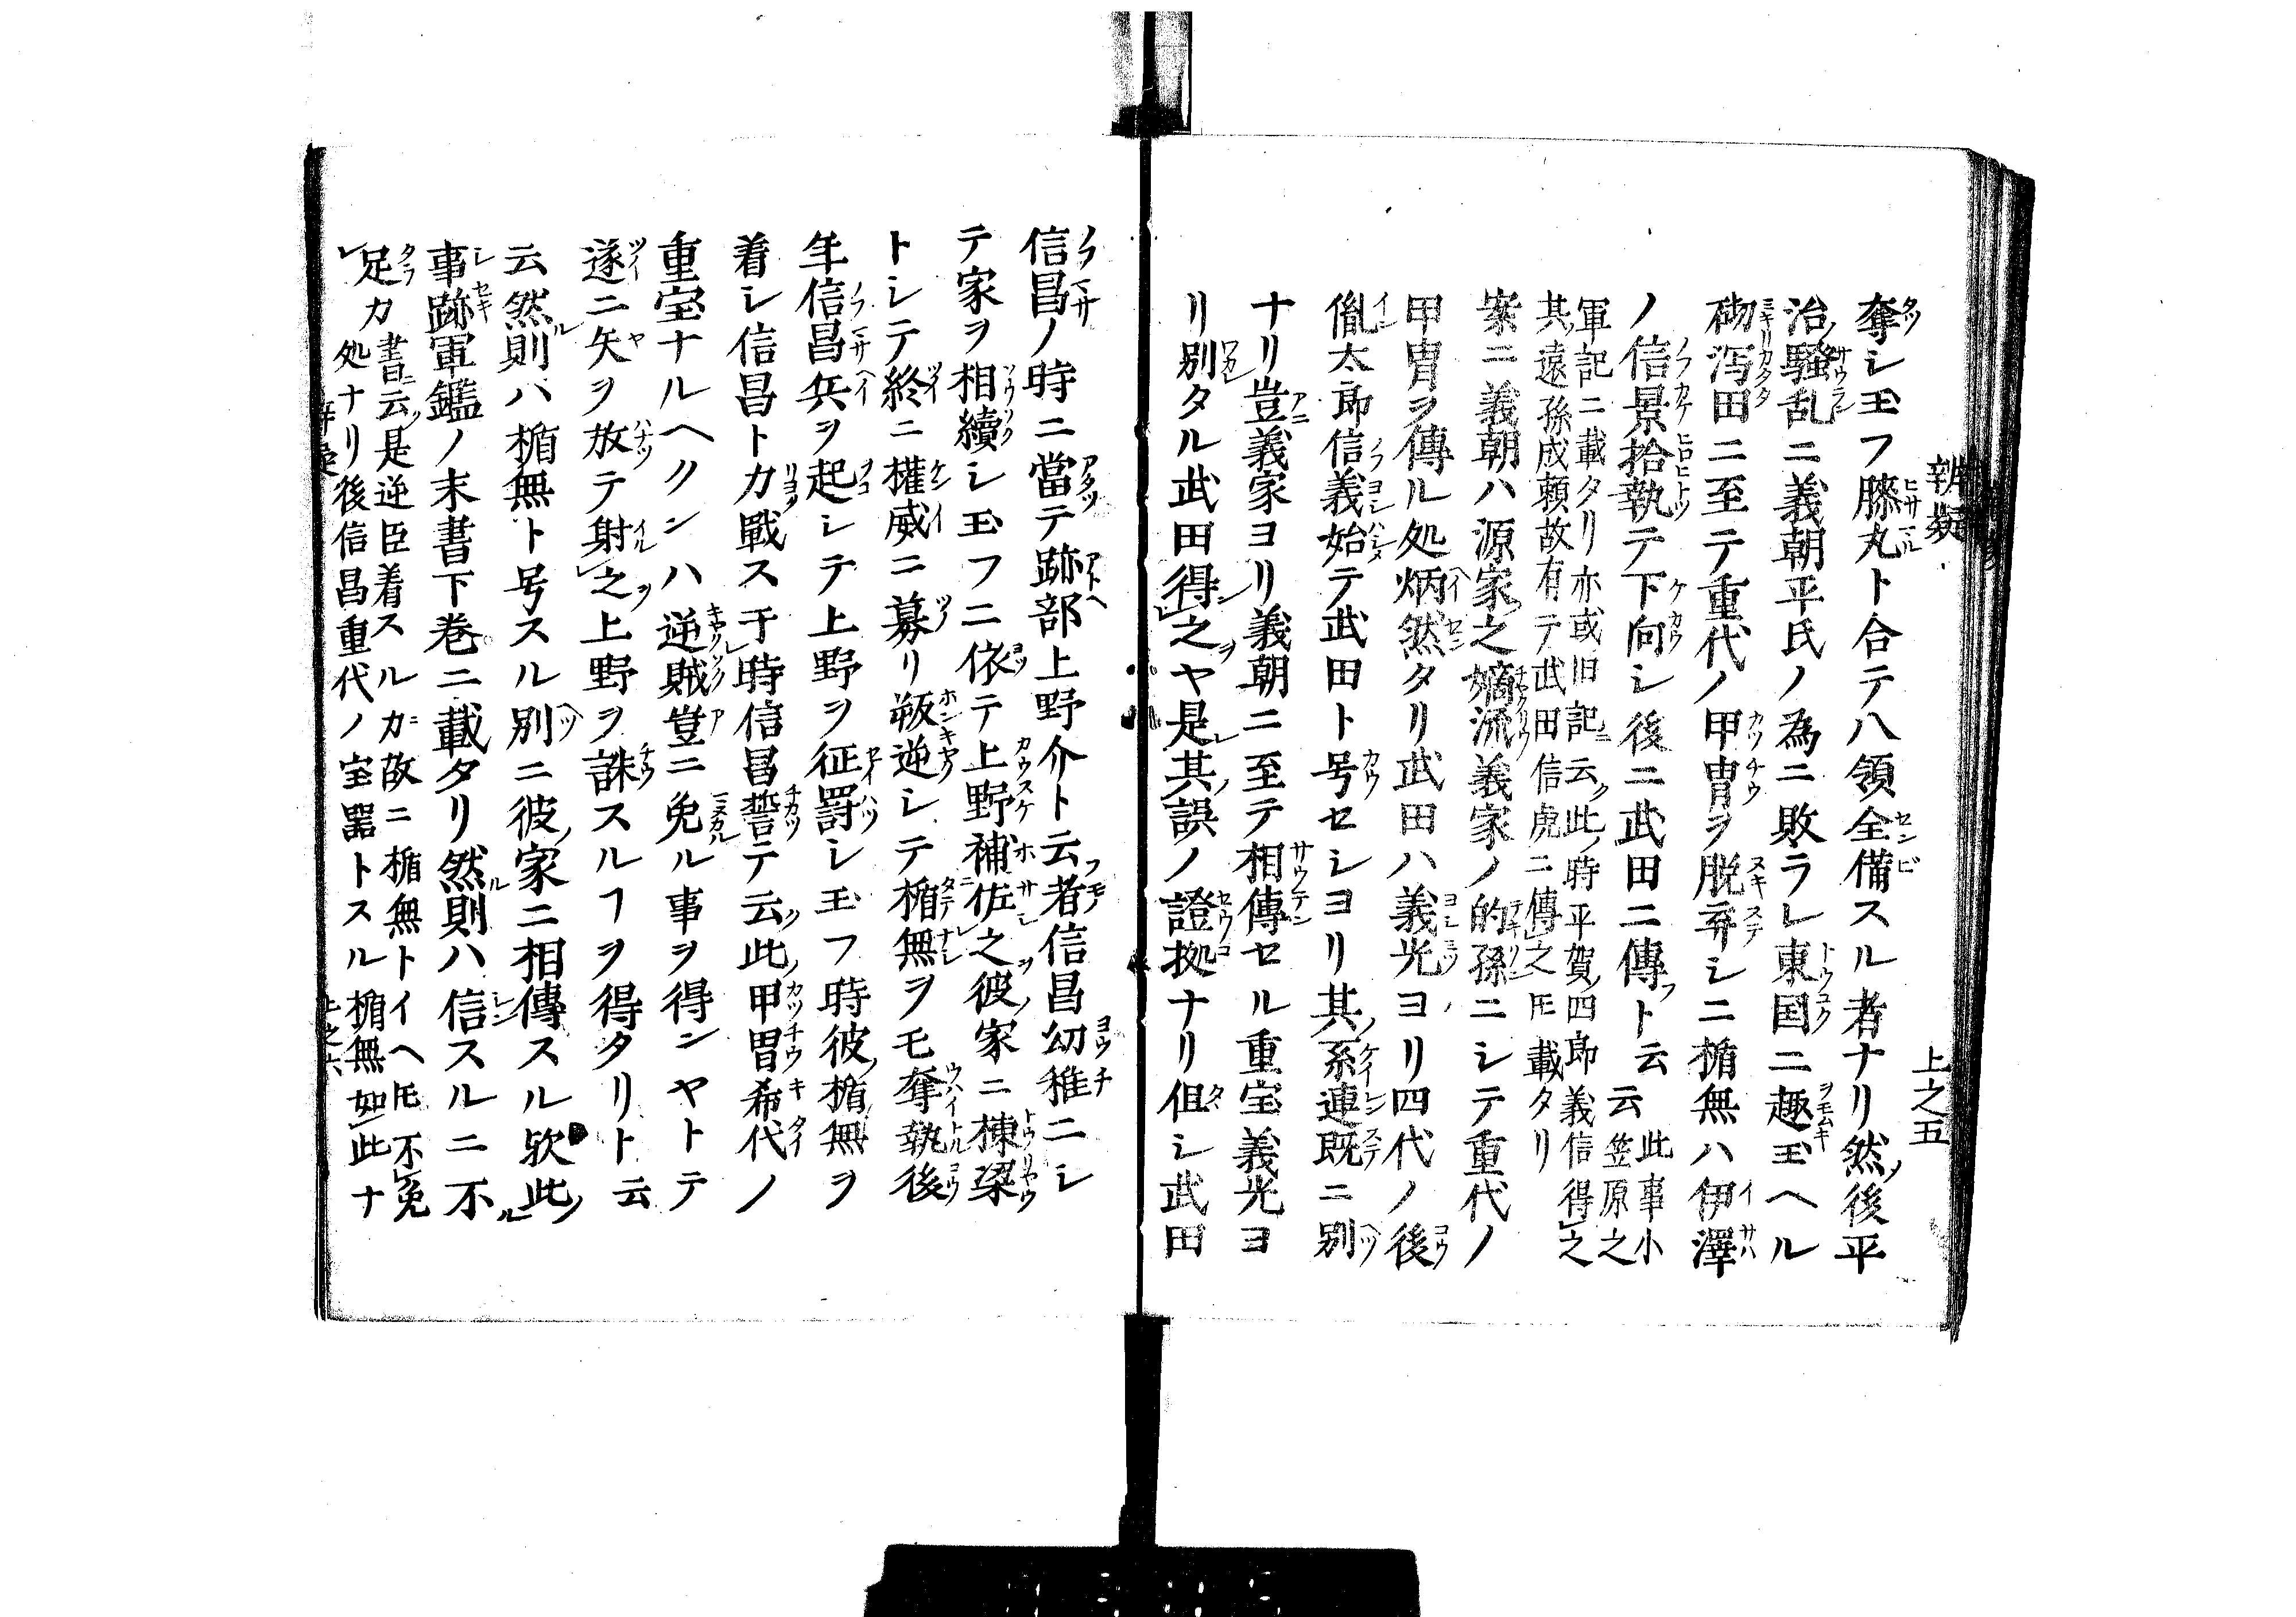 辨疑 上之五
奪シ玉フ膝丸ト合テ八領全備スル者ナリ然後平
治ノ騒乱ニ義朝平氏ノ為ニ敗ラレ東国ニ趣玉ヘル
砌瀉田ニ至テ重代ノ甲冑ヲ脱弃シニ楯無ハ伊澤
ノ信景拾執テ下向シ後ニ武田ニ傳フト云云
此事小
笠原之
軍記ニ載タリ亦或旧記ニ云ク此ノ時平賀ノ四郎義信得之
其ノ遠孫成頼故有テ武田信虎ニ傳之𪜈載タリ
案ニ義朝ハ源家之嫡流義家ノ的孫ニシテ重代ノ
甲冑ヲ傳ル処炳然タリ武田ハ義光ヨリ四代ノ後
胤太郎信義始テ武田ト号セシヨリ其ノ系連既ニ別
ナリ豈義家ヨリ義朝ニ至テ相傳セル重宝義光ヨ
リ別タル武田得之ヤ是其ノ誤ノ證拠ナリ但シ武田
信昌ノ時ニ當テ跡部上野介ト云者信昌幼稚ニシ
テ家ヲ相續シ玉フニ依テ上野補佐之彼ノ家ニ棟梁
トシテ終ニ權威ニ募リ叛逆シテ楯無ヲモ奪執後
年信昌兵ヲ起シテ上野ヲ征罸シ玉フ時彼ノ楯無ヲ
着シ信昌ト力戰ス于時信昌誓テ云ク此ノ甲冑希代ノ
重宝ナルヘクンハ逆賊豈ニ免ル事ヲ得ンヤトテ
遂ニ矢ヲ放テ射之上野ヲ誅スルヿヲ得タリト云
云然ル則ハ楯無ト号スル別ニ彼ノ家ニ相傳スル欤此ノ
事跡軍鑑ノ末書下巻ニ載タリ然ル則ハ信スルニ不ル
レ足カ
書ニ云ク是逆臣着スルガ故ニ楯無トイヘ𪜈不免
処ナリ後信昌重代ノ宝器トスル楯無如此ナ
上之六